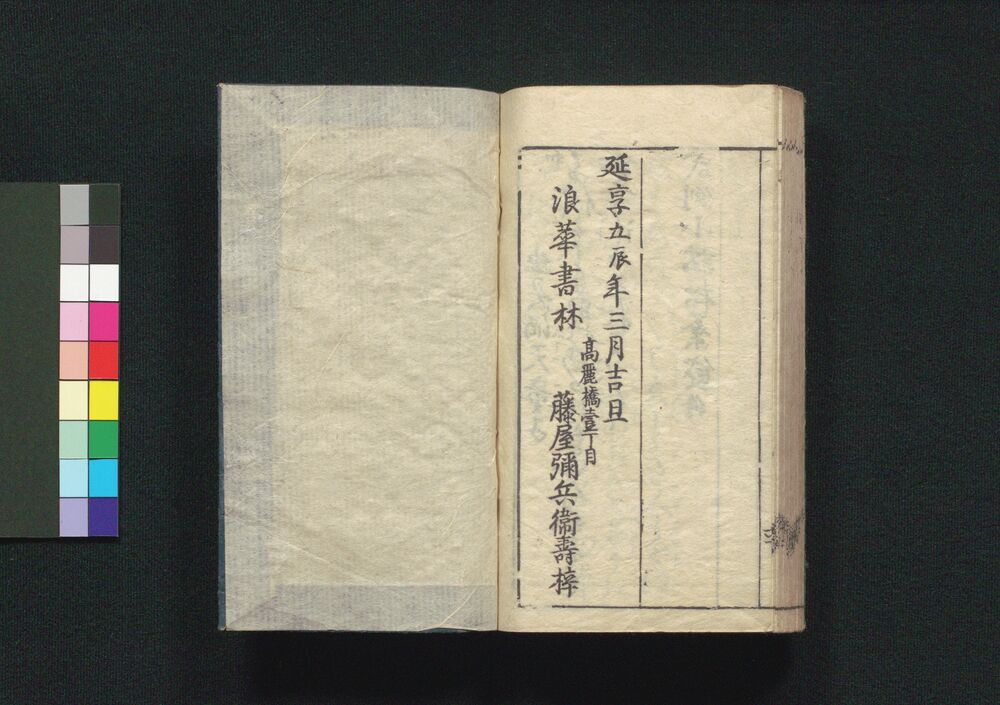 延享五辰年三月吉日
浪華書林
高麗橋壹丁目
藤屋彌兵衞壽梓